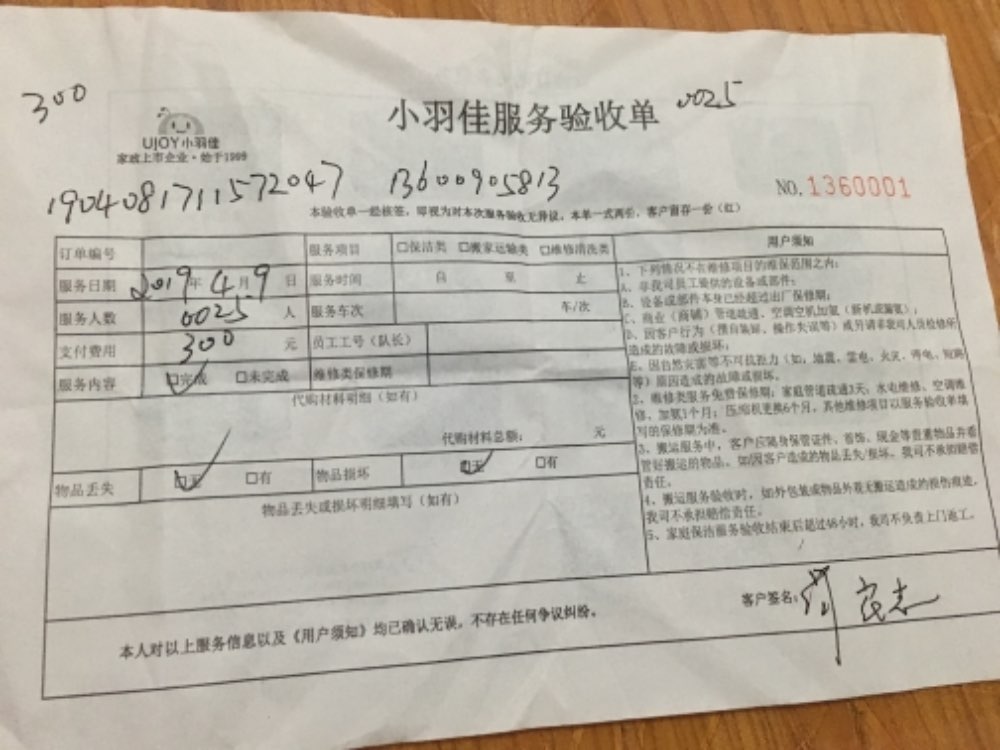 300
小羽佳服务验收单 0025
UJOY小羽佳
家政上市企业·始于1999
1904081711572047 13600905813
NO.1360001
本验收单一经核签，即视为对本次服务验收无异议，本单一式两份，客户留存一份（红）
订单编号 服务项目 □保洁类 □搬家运输类 □维修清洗类
服务日期 2019年4月9日 服务时间 自 至 止
服务人数 0025 人 服务车次 车/次
支付费用 300 元 员工工号（队长）
服务内容 □完成 □未完成 维修类保修期
代购材料明细（如有）
代购材料总额： 元
物品丢失 □无 □有 物品损坏 □无 □有
物品丢失或损坏明细填写（如有）
用户须知
1、下列情况不在维修项目的维保范围之内：
A、非我司员工提供的设备或部件；
B、设备或部件本身已经超过出厂保修期；
C、商业（商铺）管道疏通、空调空机加氟（新机或漏氟）；
D、因客户行为（擅自装卸、操作失误等）或另请非我司人员检修所
造成的故障或损坏；
E、因自然灾害等不可抗拒力（如，地震、雷电、火灾、停电、短路
等）原因造成的故障或损坏。
2、维修类服务免费保修期：家庭管道疏通3天；水电维修、空调维
修、加氟1个月；压缩机更换6个月，其他维修项目以服务验收单填
写的保修期为准。
3、搬运服务中，客户应随身保管证件、首饰、现金等贵重物品并看
管好搬运的物品，如因客户造成的物品丢失/损坏，我司不承担赔偿
责任。
4、搬运服务验收时，如外包装或物品外观无搬运造成的损伤痕迹，
我司不承担赔偿责任。
5、家庭保洁服务验收结束后超过48小时，我司不负责上门返工。
客户签名：
本人对以上服务信息以及《用户须知》均已确认无误，不存在任何争议纠纷。